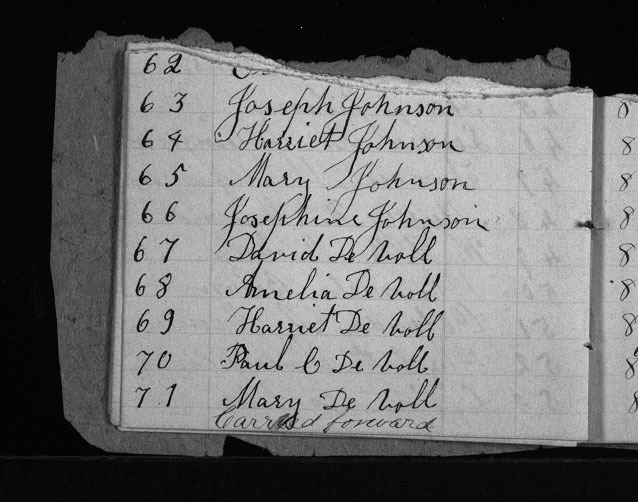 62
63 Joseph Johnson 8
64 Harriet Johnson 8
65 Mary Johnson 8
66 Josephine Johnson 8
67 David De Voll 8
68 Amelia De Voll 8
69 Harriet De Voll 8
70 Paul C De Voll 8
71 Mary De Voll 8
Carried forward